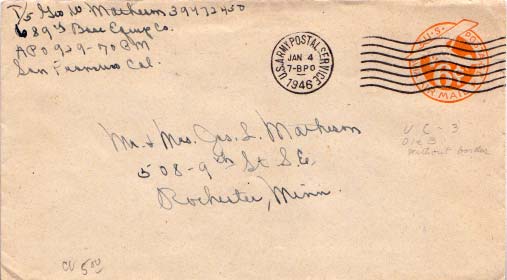 T/5 Geo W Matheson 39472450
689th Base Equip Co.
APO 929-70 PM
San Francisco Cal.
U.S. ARMY POSTAL SERVICE
JAN 4
7-BPO
1946
U.S. POSTAGE
6¢
AIR MAIL
Mr. & Mrs. Jas. L. Matheson
508-9th St S.E.
Rochester, Minn.
UC-3
Die 3
without border
CV 5.00